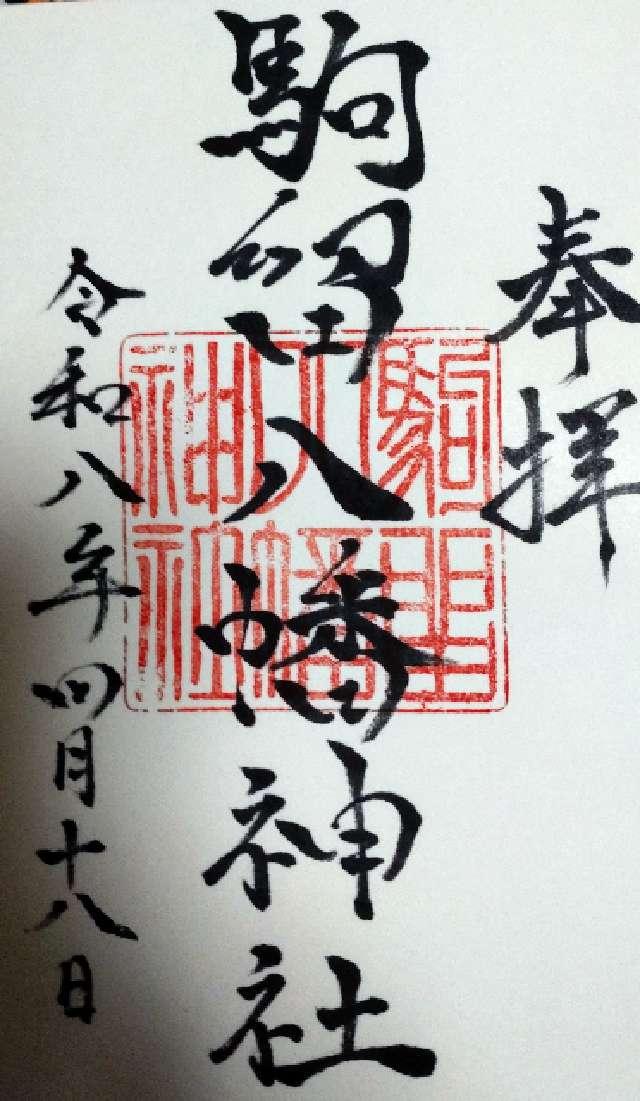 奉拝
駒留八幡神社
駒留八幡神社
令和八年四月十八日